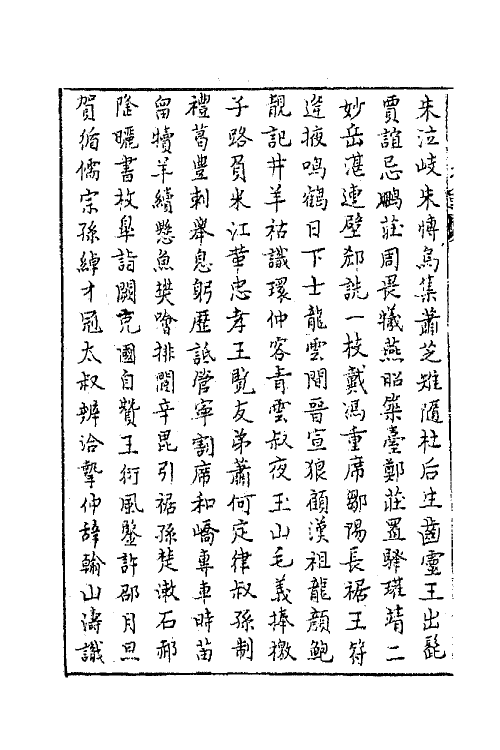 朱泣岐朱博烏集蕭芝雉隨杜后生齒靈王出髭
賈誼忌鵩莊周畏犧燕昭築臺鄭莊置驛瓘靖二
妙岳湛連璧郄詵一枝戴馮重席鄒陽長裾王符
逢掖鳴鶴日下士龍雲間晉宣狼顧漢祖龍顔鮑
靚記井羊祜識環仲容青雲叔夜玉山毛義捧檄
子路負米江革忠孝王覽友弟蕭何定律叔孫制
禮葛豐刺舉息躬歷詆管寧割席和嶠專車時苗
留犢羊續懸魚樊噲排闥辛毘引裾孫楚漱石郝
隆曬書枚皐詣闕充國自贊王衍風鑒許郃月旦
賀循儒宗孫綽才冠太叔辨洽摯仲辭翰山濤識